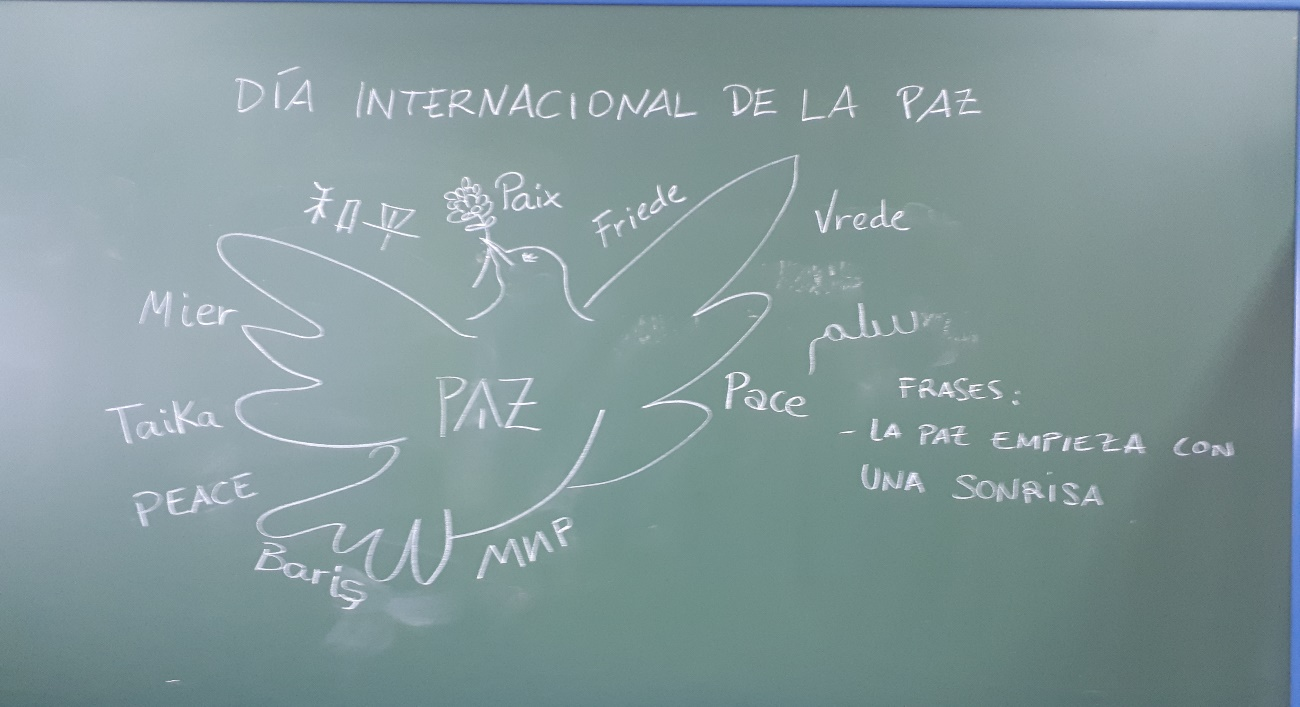 DÍA INTERNACIONAL DE LA PAZ
和平
Paix
Friede
Vrede
Mier
Taika
PAZ
Pace
PEACE
Bariş
МИР
FRASES:
- LA PAZ EMPIEZA CON
UNA SONRISA